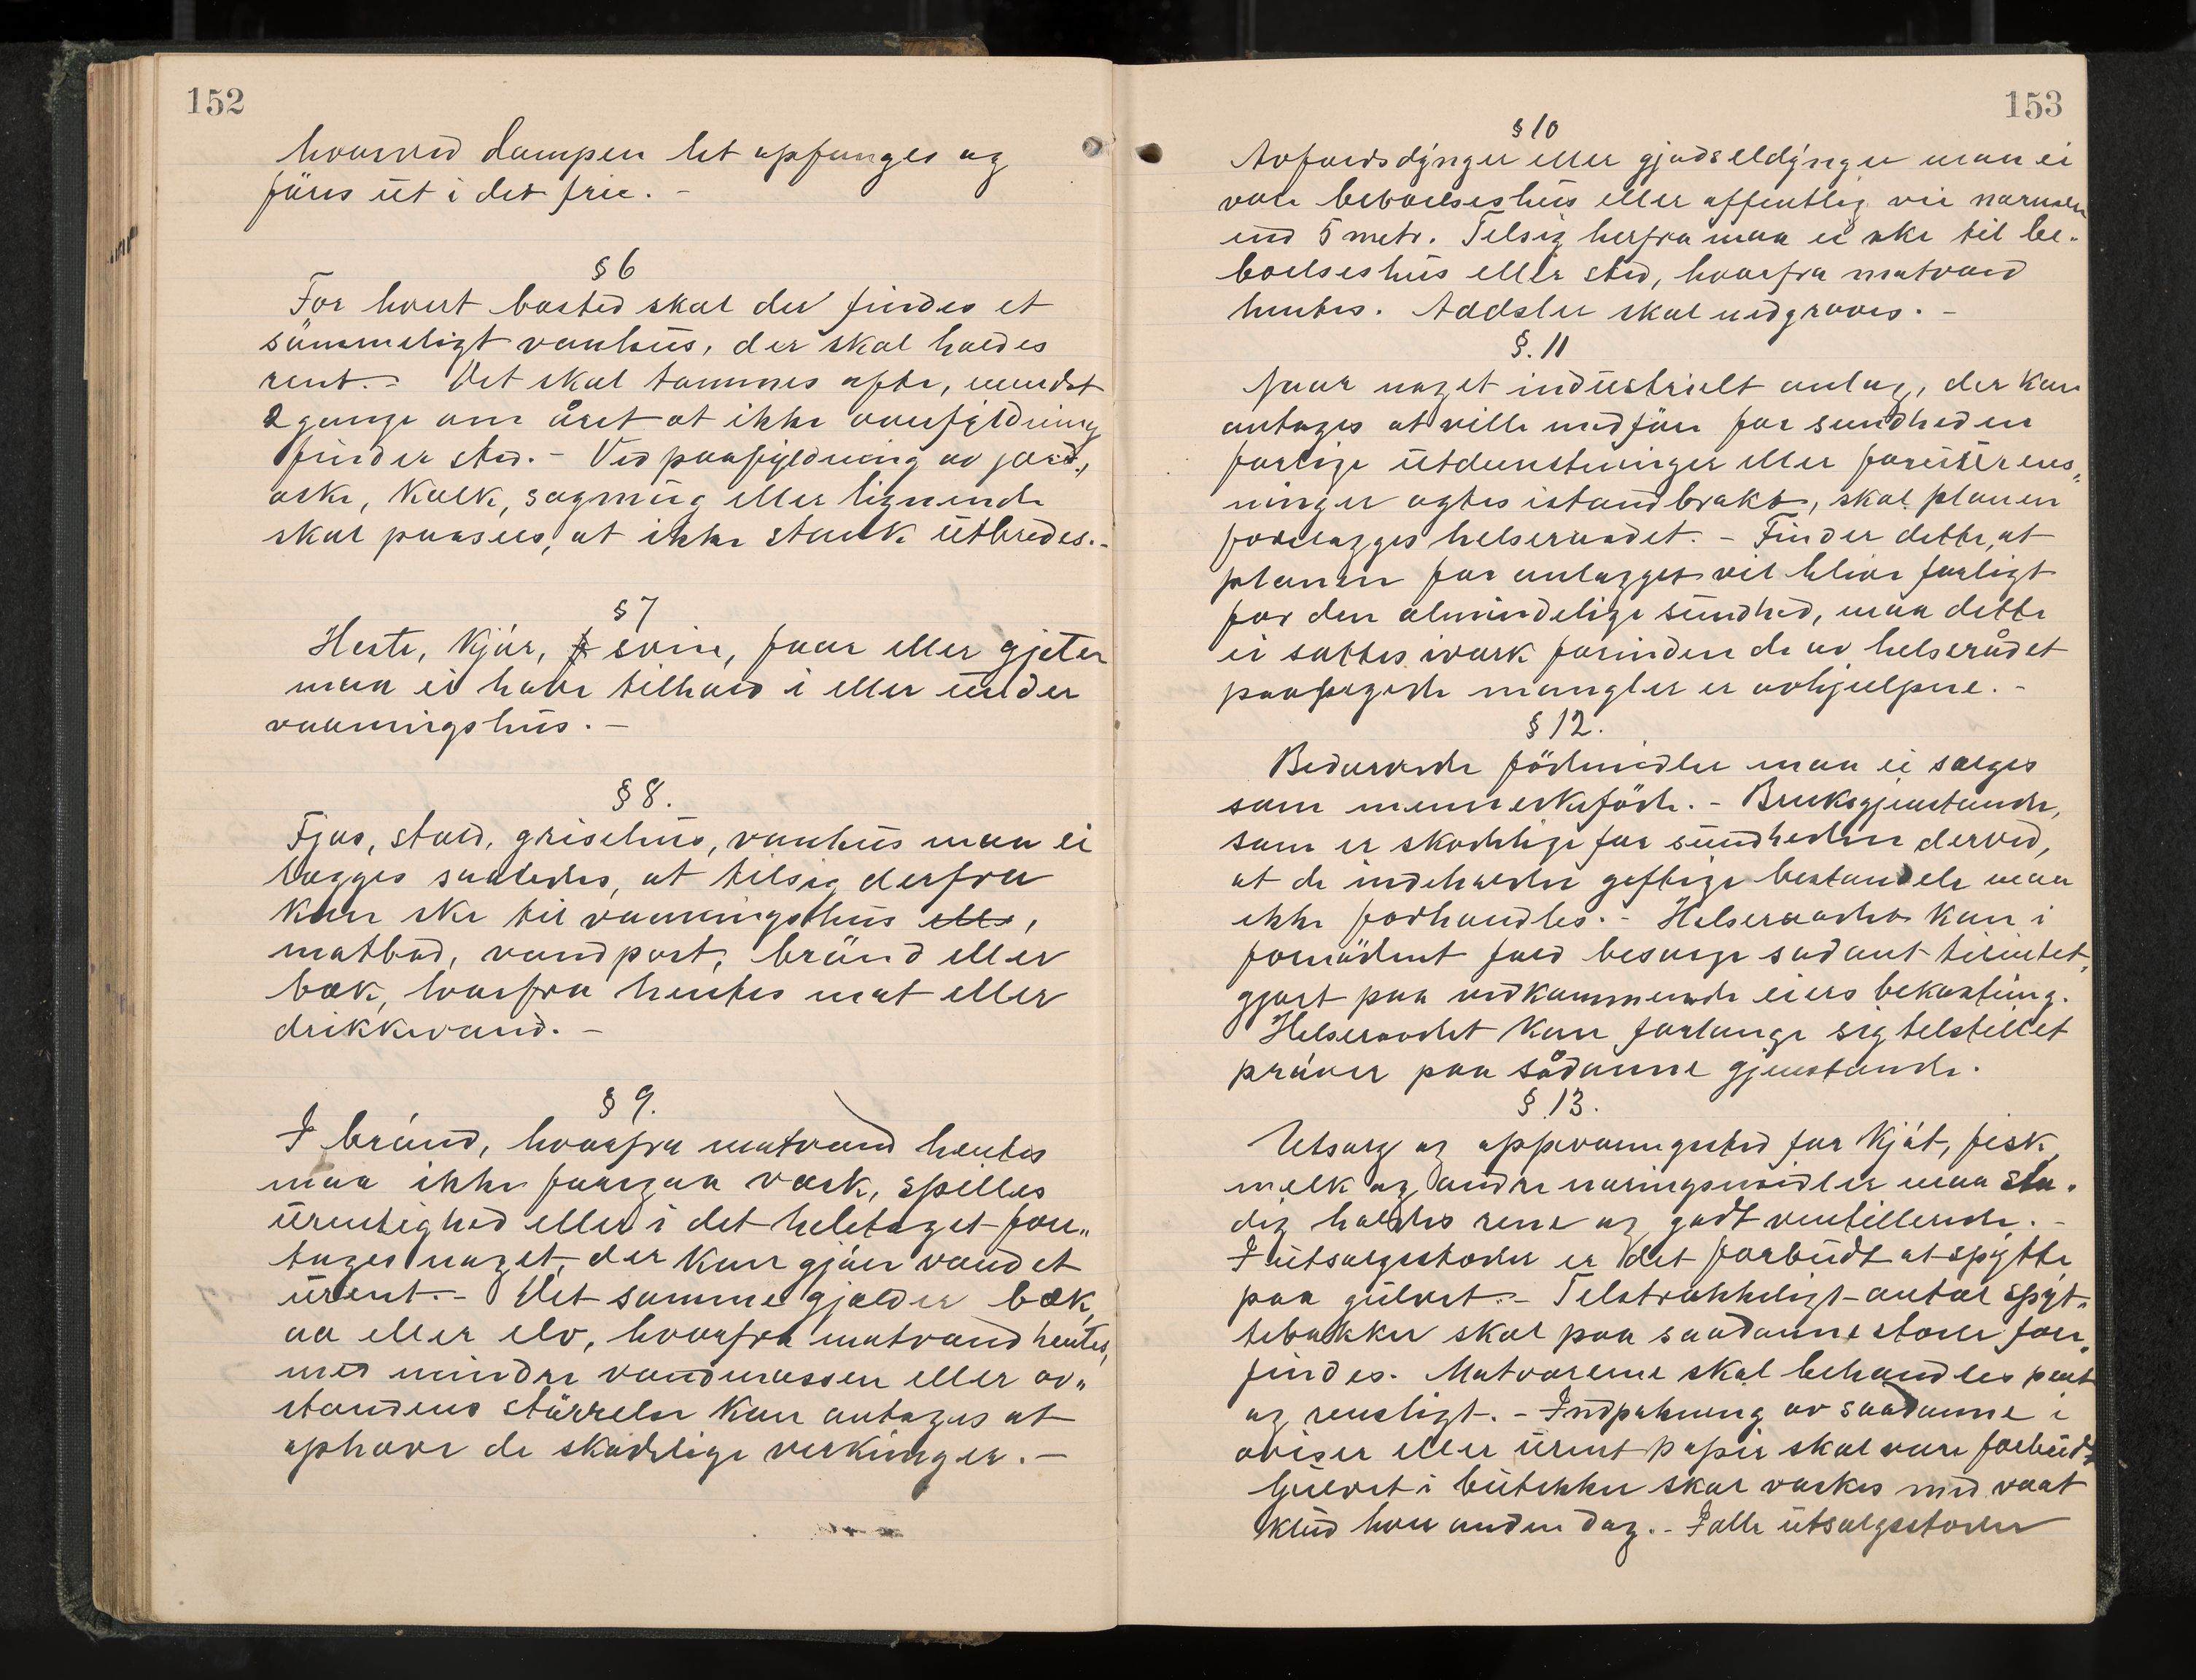 152
hvorved dampen let opfanges og
föres üt i det frie. -
§ 6
For hvert bosted skal der findes et
sömmeligt vanhüs, der skal holdes
rent. - Det skal tømmes ofte, mindst
2 gange om året at ikke overfyldning
finder sted. - Ved paafyldning av jord,
aske, kalk, sagmüg eller lignende
skal paasees, at ikke stank ütbredes. -
§ 7
Heste, kjør, svin, faar eller gjeter
maa ei have tilhold i eller ünder
vaaningshüs. -
§ 8.
Fjøs, stald, grisehüs, vanhüs maa ei
lægges saaledes, at tilsig derfra
kan ske til vaaningshüs elle,
matbod, vandpost, brönd eller
bæk, hvorfra hentes mat eller
drikkevand. -
§ 9.
I brønd, hvorfra matvand hentes
maa ikke foregaa vask, spilles
ürenslighed eller i det heletaget fore„
tages noget, der kan gjøre vandet
ürent. - Det samme gjælder bæk,
aa eller elv, hvorfra matvand hentes,
med mindre vandmassen eller av„
standens störrelse kan antages at
ophæve de skadelige virkninger. -
153
§ 10
Avfaldsdynger eller gjødseldynger maa ei
være beboelseshüs eller offentlig vei nærmere
end 5 metr. Tilsig herfra maa ei ske til be-
boelseshüs eller sted, hvorfra matvand
hentes. Aadsler skal nedgraves. -
§. 11
Naar noget indüstrielt anlæg, der kan
antages at ville medföre for sundheden
farlige üdunstninger eller forürens„
ninger agtes istandbrakt, skal planen
forelægges helseraadet. - Finder dette, at
planen for anlægget vil blive farligt
for den almindelige sündhed, maa dette
ei sættes iværk forinden de av helserådet
paapegede mangler er avhjulpne. -
§ 12.
Bedærvede födemidler maa ei sælges
som menneskeföde. - Bruksgjenstande,
som er skadelige for sündheden derved,
at de indeholder giftige bestandele maa
ikke forhandles. - Helseraadet kan i
fornödent fald besørge sadant tilintet„
gjort paa vedkommende eiers bekostning.
Helseraadet kan forlange sig tilstillet
prøver paa sådanne gjenstande.
§ 13.
Utsalg og oppevaringssted for kjøt, fisk,
melk og andre næringsmidler maa sta„
dig holdes rene og godt ventillerede. -
I ütsalgsstæder er det forbüdt at spytte
paa gülvet. - Tilstrækkeligt antal spyt„
tebakker skal paa saadanne stæder fore„
findes. Matvarene skal behandles pent
og rensligt. - Indpakning av saadanne i
aviser eller ürent papir skal være forbüdt.
Gülvet i bütikker skal vaskes med vaat
klüd hver anden dag. - I alle ütsalgsstæder